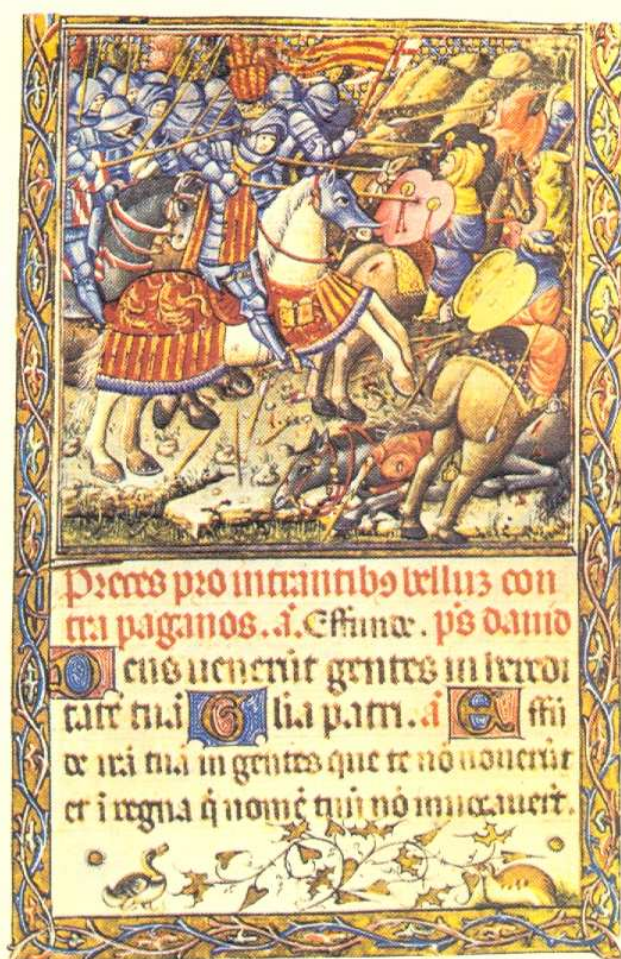 Preces pro intrantibꝯ belluz con
tra paganos. a͂. Effunde. p̄s dauid
Deus uenerūt gentes in heredi
tatē tuā Glia patri. a͂ Effū
de irā tuā in gentes que te nō nouerūt
et ī regna q̄ nomē tuū nō inuocauerūt.